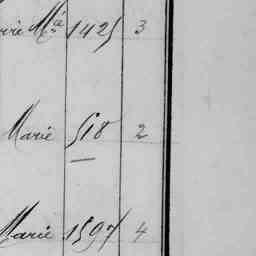 Mie 1425 3
Marié 518 2
Marié 1597 4